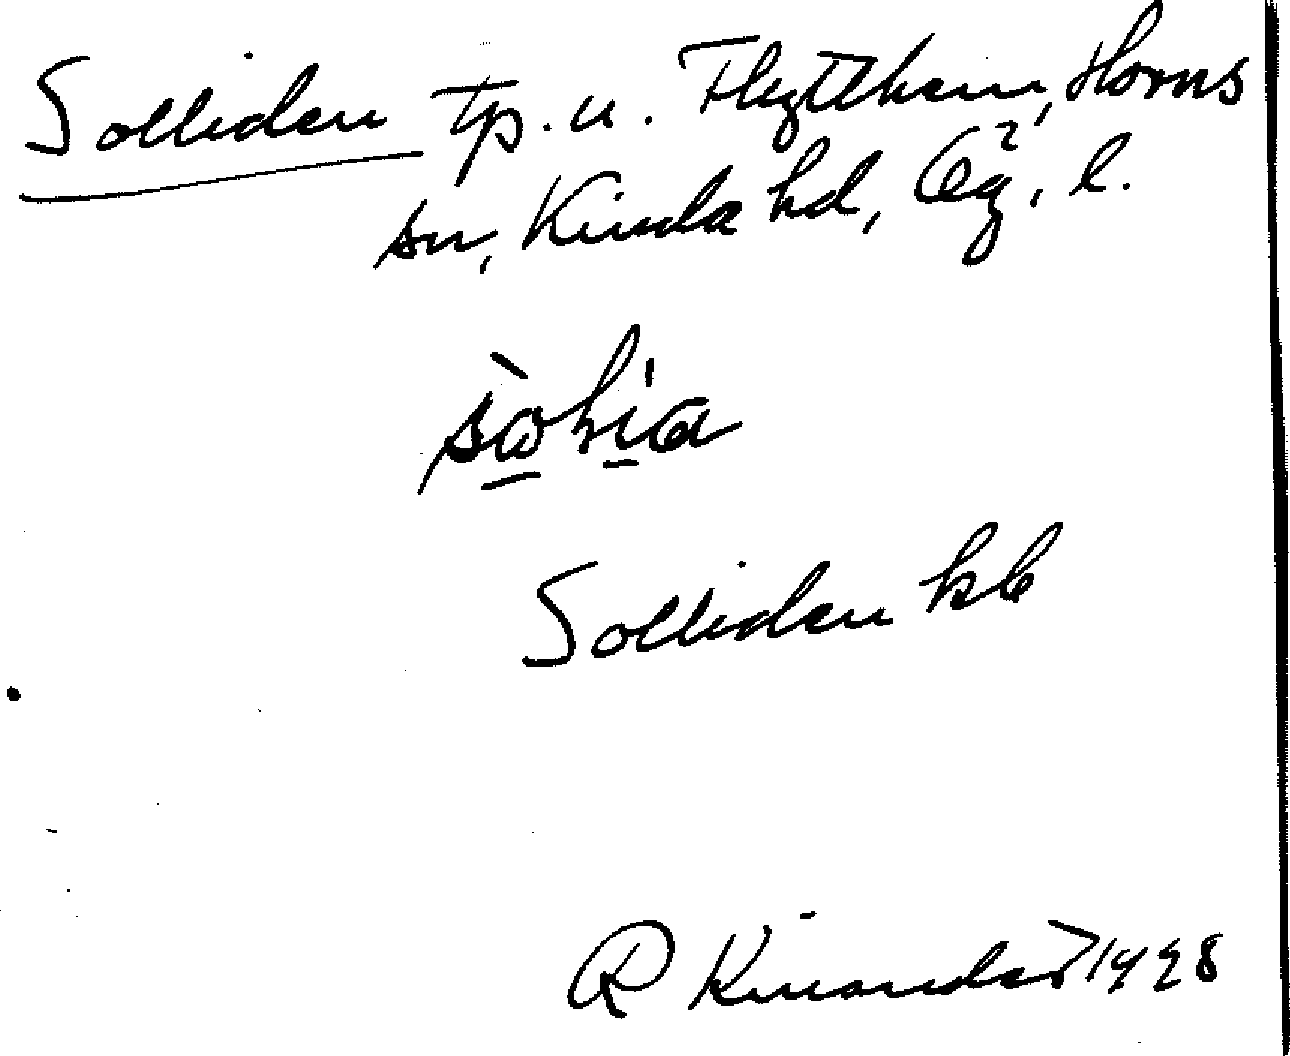 Solliden tp. u. Flytthem, Horns
sn, Kinda hd, Ög, l.
Solliden kb
R Kinander 1928